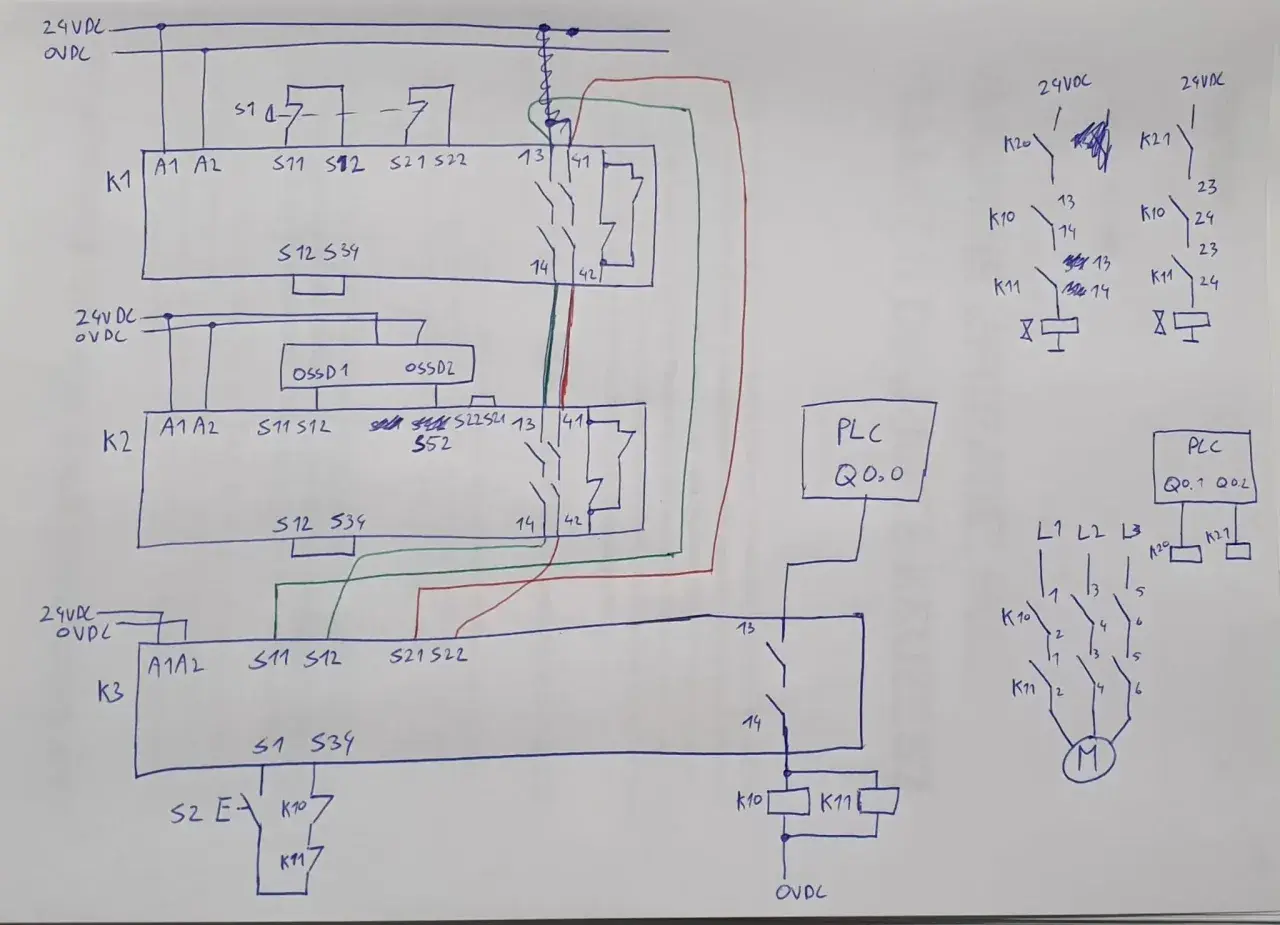 24VDC
0VDC
S1
K1
A1 A2 S11 S12 S21 S22 13 41
S12 S34 14 42
24VDC
0VDC
OSSD1 OSSD2
K2
A1 A2 S11 S12 S52 S22 S21 13 41
S12 S34 14 42
24VDC
0VDC
K3
A1 A2 S11 S12 S21 S22 13
S1 S34 14
S2 E
K10
K11
K10 K11
0VDC
PLC
Q0.0
24VDC 24VDC
K20 K21
K10 13 14
K10 23 24
K11 13 14
K11 23 24
PLC
Q0.1 Q0.2
K20 K21
L1 L2 L3
K10 1 2 3 4 5 6
K11 1 2 3 4 5 6
M